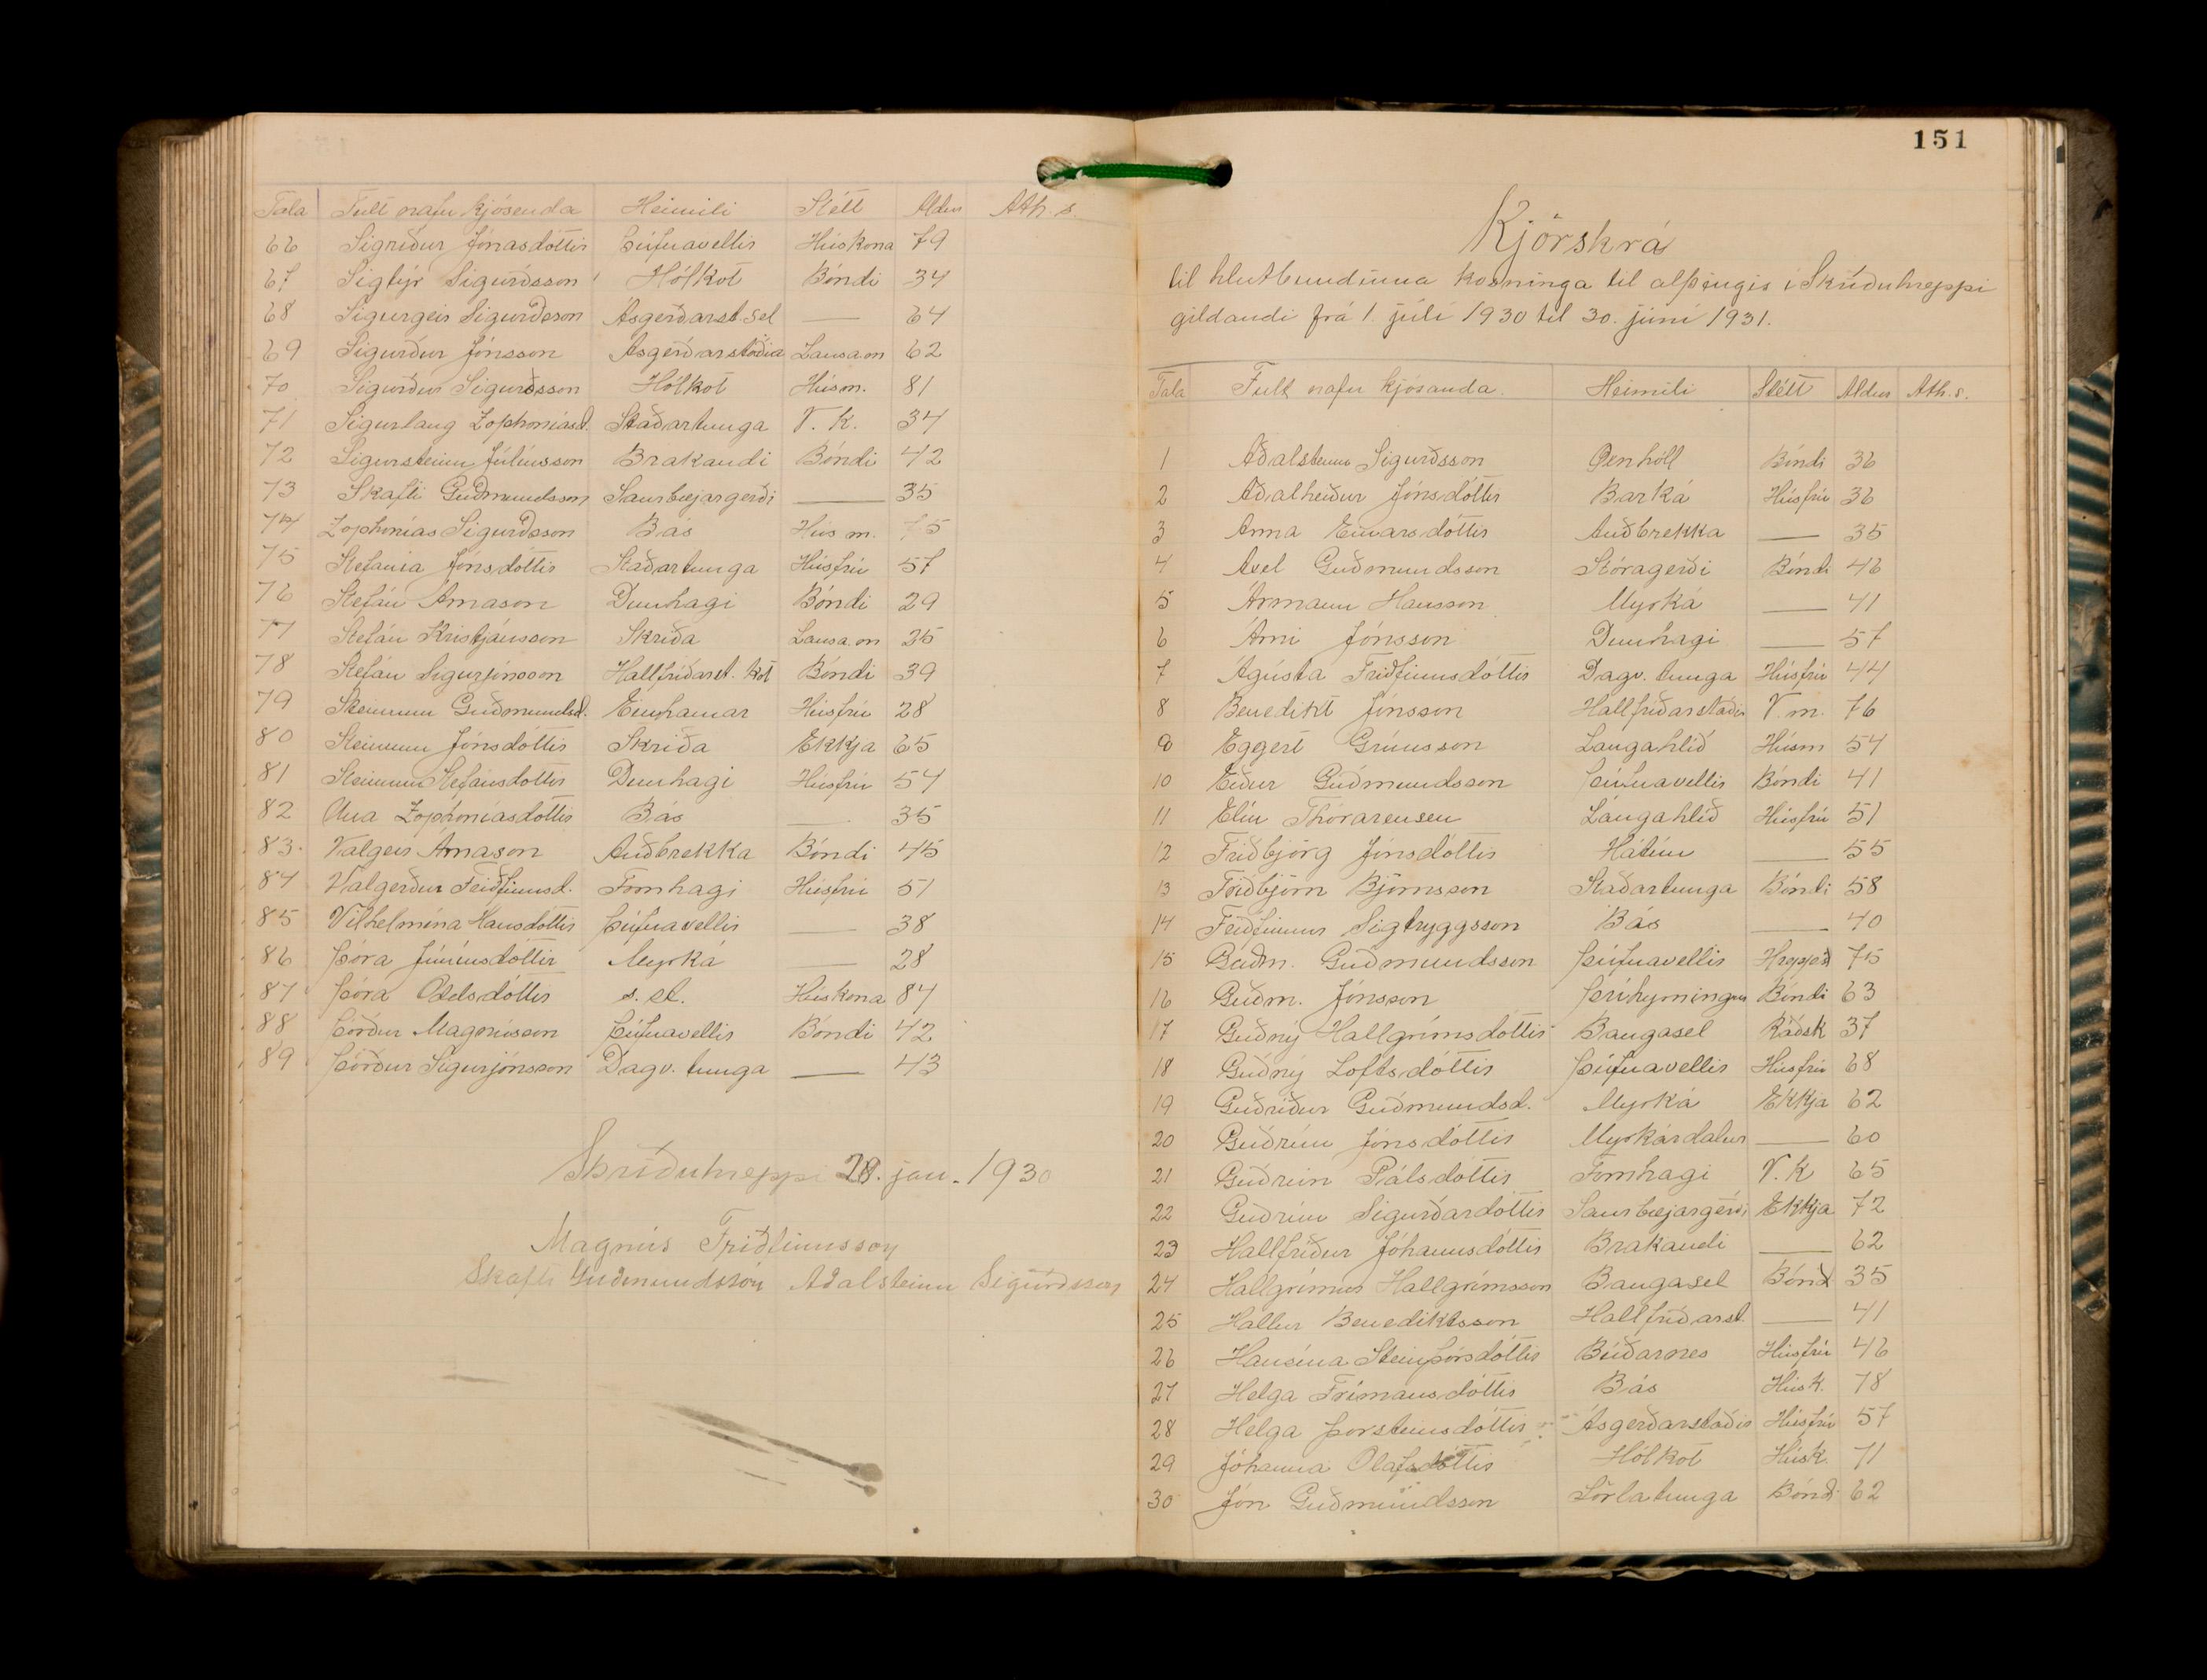 Tala Fult nafn kjósenda Heimili Stétt Aldur Ath.s.
66 Sigríður Jónasdóttir Þúfnavellir Húskona 79
67 Sigtýr Sigurðsson Hólkot Bóndi 34
68 Sigurgeir Sigurðsson Ásgerðarst.sel — 64
69 Sigurður Jónsson Ásgerðarstaðir Lausam 62
70 Sigurður Sigurðsson Hólkot Húsm. 81
71 Sigurlaug Zophoníasd. Staðartunga V. k. 34
72 Sigursteinn Júlíusson Brakandi Bóndi 42
73 Skafti Guðmundsson Saurbæjargerði — 35
74 Zophonías Sigurðsson Bás Hús m. 75
75 Stefanía Jónsdóttir Staðartunga Húsfrú 57
76 Stefán Árnason Dunhagi Bóndi 29
77 Stefán Kristjánsson Skriða Lausam 25
78 Stefán Sigurjónsson Hallfríðarst. kot Bóndi 39
79 Steinunn Guðmundsd. Einhamar Húsfrú 28
80 Steinunn Jónsdóttir Skriða Ekkja 65
81 Steinunn Stefánsdóttir Dunhagi Húsfrú 54
82 Una Zophoníasdóttir Bás — 35
83. Valgeir Árnason Auðbrekka Bóndi 45
84 Valgerður Friðfinnsd. Fornhagi Húsfrú 51
85 Vilhelmína Hansdóttir Þúfnavellir — 38
86 Þóra Júníusdóttir Myrká — 28
87 Þóra Oddsdóttir s. st. Húskona 87
88 Þórður Magnússon Þúfnavellir Bóndi 42
89 Þórður Sigurjónsson Dagv. tunga — 43
Skriðuhreppi 28. jan. 1930
Magnús Friðfinnsson
Skafti Guðmundsson Aðalsteinn Sigurðsson
151
Kjörskrá
til hlutbundinna kosninga til alþingis í Skriðuhreppi
gildandi frá 1. júlí 1930 til 30. júní 1931.
Tala Fult nafn kjósanda. Heimili Stétt Aldur Ath.s.
1 Aðalsteinn Sigurðsson Öxnhóll Bóndi 36
2 Aðalheiður Jónsdóttir Barká Húsfrú 36
3 Anna Einarsdóttir Auðbrekka — 35
4 Axel Guðmundsson Stóragerði Bóndi 46
5 Ármann Hansson Myrká — 41
6 Árni Jónsson Dunhagi — 57
7 Ágústa Friðfinnsdóttir Dagv. tunga Húsfrú 44
8 Benedikt Jónsson Hallfríðarstaðir V m. 76
9 Eggert Grímsson Langahlíð Húsm 54
10 Eiður Guðmundsson Þúfnavellir Bóndi 41
11 Elín Thorarensen Langahlíð Húsfrú 51
12 Friðbjörg Jónsdóttir Hátún — 55
13 Friðbjörn Björnsson Staðartunga Bóndi 58
14 Friðfinnur Sigtryggsson Bás — 40
15 Guðm. Guðmundsson Þúfnavellir Hreppst 75
16 Guðm. Jónsson Þríhyrningur Bóndi 63
17 Guðný Hallgrímsdóttir Baugasel Ráðsk 37
18 Guðný Loftsdóttir Þúfnavellir Húsfrú 68
19 Guðríður Guðmundsd. Myrká Ekkja 62
20 Guðrún Jónsdóttir Myrkárdalur — 60
21 Guðrún Pálsdóttir Fornhagi V. k 65
22 Guðrún Sigurðardóttir Saurbæjargerði Ekkja 72
23 Hallfríður Jóhannsdóttir Brakandi — 62
24 Hallgrímur Hallgrímsson Baugasel Bónd 35
25 Hallur Benediktsson Hallfríðarst. — 41
26 Hansína Steinþórsdóttir Búðarnes Húsfrú 46
27 Helga Frímannsdóttir Bás Húsk. 78
28 Helga Þorsteinsdóttir Ásgerðarstaðir Húsfrú 57
29 Jóhanna Ólafsdóttir Hólkot Húsk. 71
30 Jón Guðmundsson Sörlatunga Bónd. 62